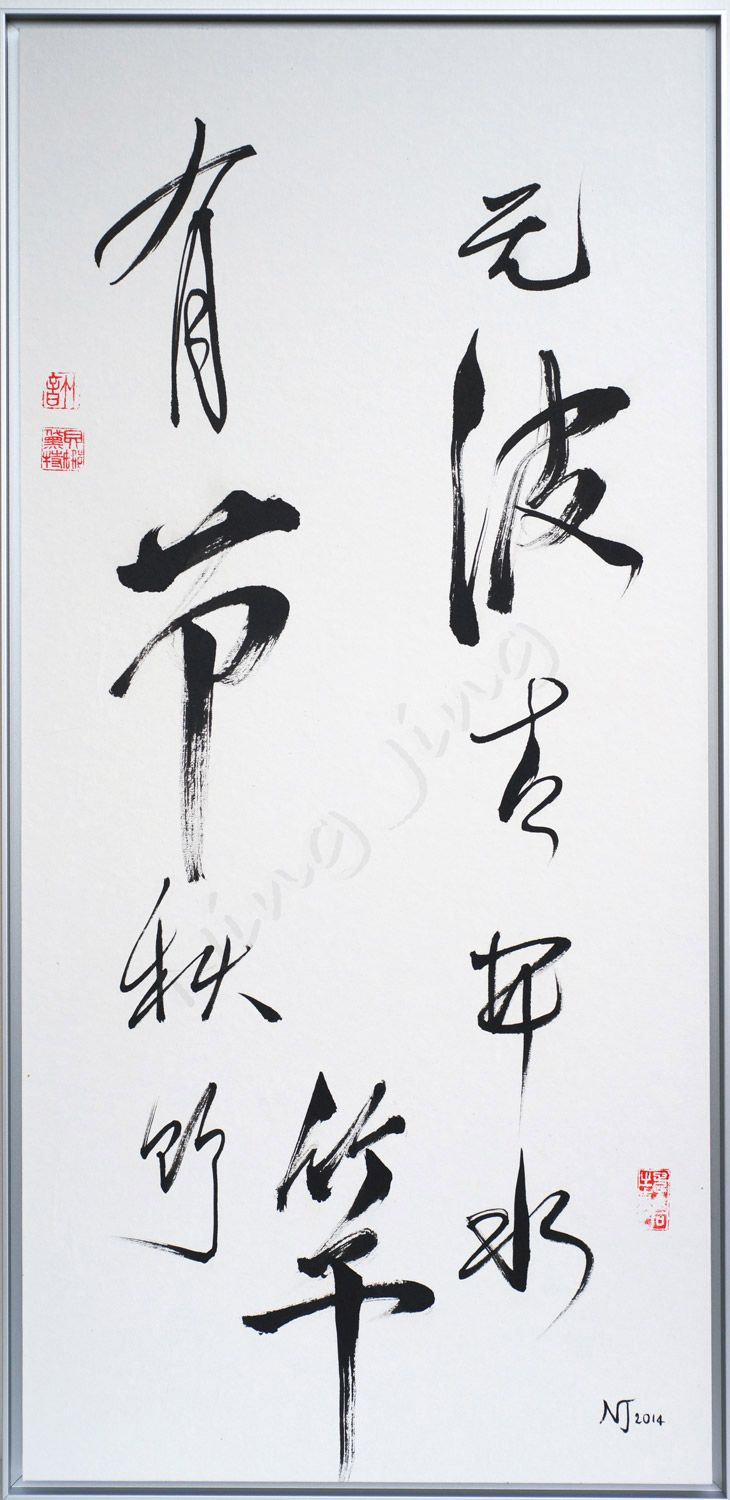 无波古井水
有节秋竹竿
NJ 2014